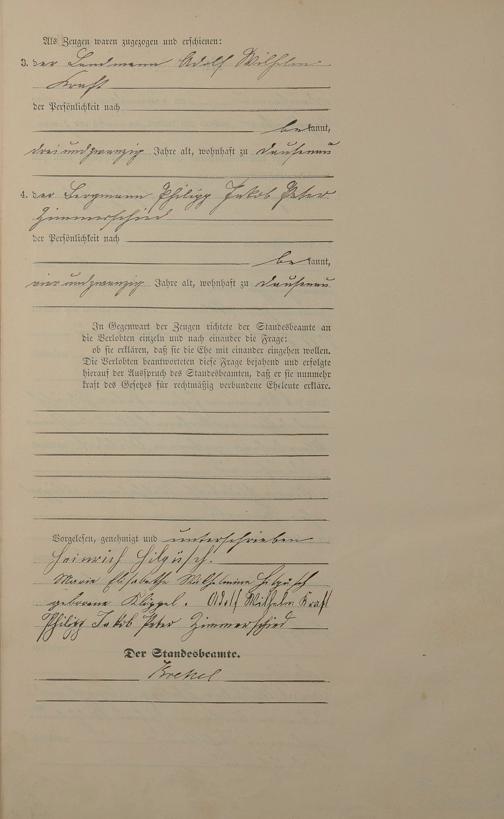 Als Zeugen waren zugezogen und erschienen:
3. der Landmann Adolf Wilhelm
Kraft
der Persönlichkeit nach
bekannt,
dreiundzwanzig Jahre alt, wohnhaft zu Dausenau
4. der Bergmann Philipp Jakob Peter
Zimmerschied
der Persönlichkeit nach
bekannt,
vierundzwanzig Jahre alt, wohnhaft zu Dausenau
In Gegenwart der Zeugen richtete der Standesbeamte an
die Verlobten einzeln und nach einander die Frage:
ob sie erklären, daß sie die Ehe mit einander eingehen wollen.
Die Verlobten beantworteten diese Frage bejahend und erfolgte
hierauf der Ausspruch des Standesbeamten, daß er sie nunmehr
kraft des Gesetzes für rechtmäßig verbundene Eheleute erkläre.
Vorgelesen, genehmigt und unterschrieben
Heinrich Hilgüsch.
Marie Elisabeth Wilhelmine Hilgüsch
geborene Klöppel. Adolf Wilhelm Kraft
Philipp Jakob Peter Zimmerschied
Der Standesbeamte.